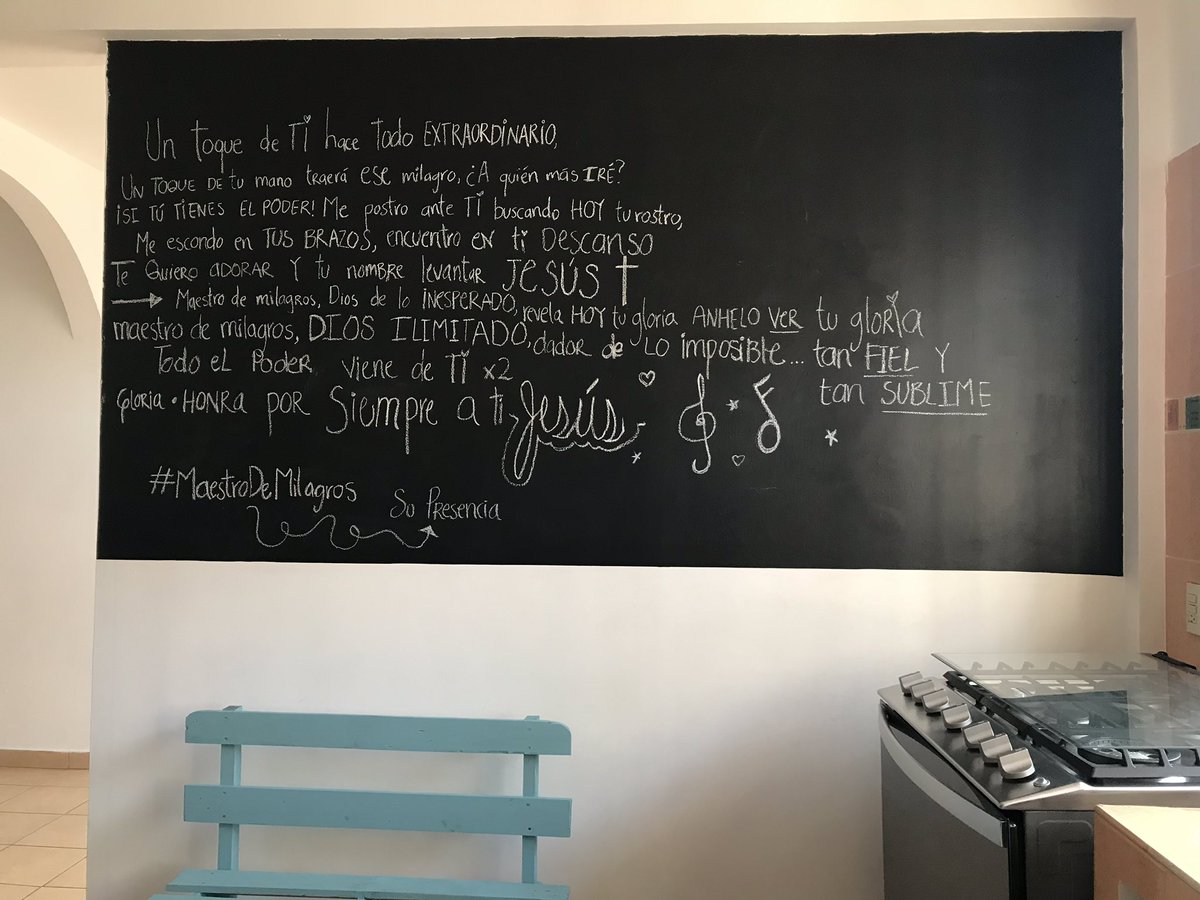 Un toque de Ti hace Todo EXTRAORDINARIO,
UN TOQUE DE tu mano traerá ESE milagro, ¿A quién más IRÉ?
¡SI TÚ TIENES EL PODER! Me postro ante TI buscando HOY tu rostro,
Me escondo en TUS BRAZOS, encuentro en ti DESCANSO
TE QUIERO ADORAR Y tu NOMBRE levantar JESÚS
Maestro de milagros, Dios de lo INESPERADO, revela HOY tu gloria ANHELO VER tu gloria
maestro de milagros, DIOS ILIMITADO, dador de LO imposible... tan FIEL Y
Todo EL PODER viene de Ti x2
tan SUBLIME
Gloria • HONRA por Siempre a ti Jesús
#MaestroDeMilagros
Su Presencia